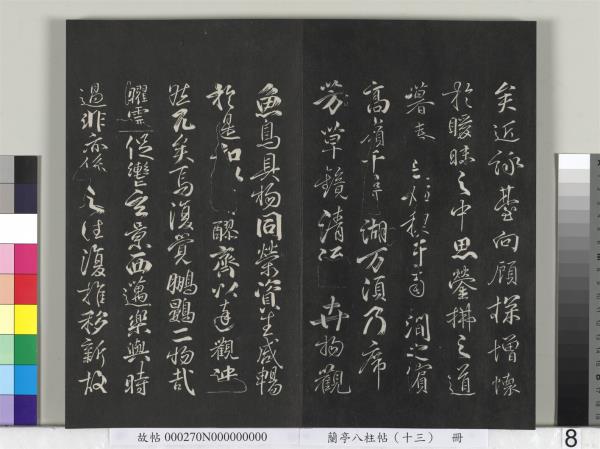 矣近詠臺向顧探增懷
於曖昧之中思縈拂之道
暮春之始禊于南澗之濱
高嶺千尋湖万頃乃席
芳草鏡清流卉物觀
魚鳥具物同榮資生咸暢
於是和以醪齊以達觀泱
然兀矣焉復覺鵬鷃二物哉
曜靈促轡急景西邁樂與時
過悲亦係之往復推移新故
故帖 000270N000000000
蘭亭八柱帖（十三） 冊
8